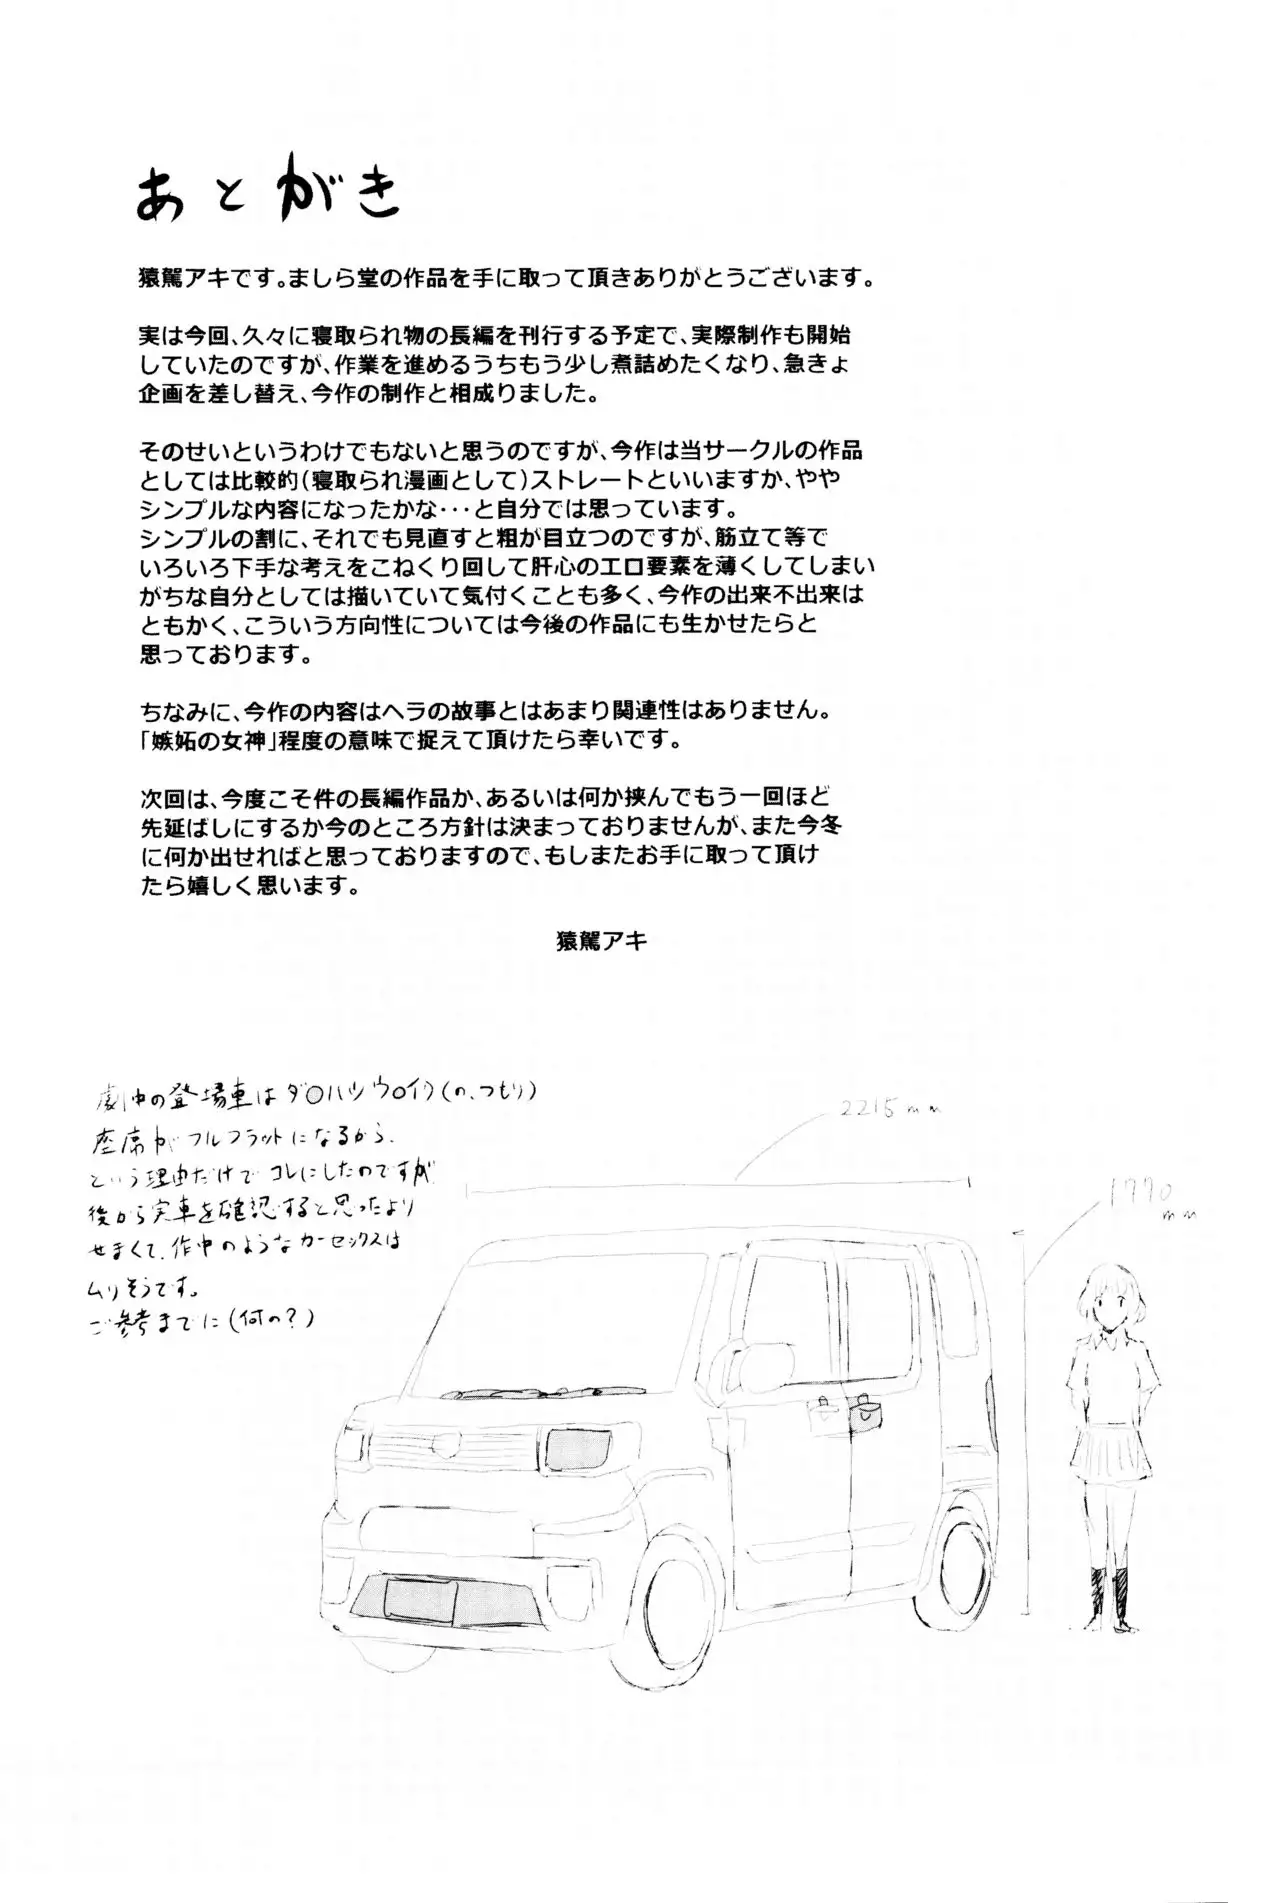 あとがき
猿駕アキです。ましら堂の作品を手に取って頂きありがとうございます。
実は今回、久々に寝取られ物の長編を刊行する予定で、実際制作も開始
していたのですが、作業を進めるうちもう少し煮詰めたくなり、急きょ
企画を差し替え、今作の制作と相成りました。
そのせいというわけでもないと思うのですが、今作は当サークルの作品
としては比較的(寝取られ漫画として)ストレートといいますか、やや
シンプルな内容になったかな・・・と自分では思っています。
シンプルの割に、それでも見直すと粗が目立つのですが、筋立て等で
いろいろ下手な考えをこねくり回して肝心のエロ要素を薄くしてしまい
がちな自分としては描いていて気付くことも多く、今作の出来不出来は
ともかく、こういう方向性については今後の作品にも生かせたらと
思っております。
ちなみに、今作の内容はヘラの故事とはあまり関連性はありません。
「嫉妬の女神」程度の意味で捉えて頂けたら幸いです。
次回は、今度こそ件の長編作品か、あるいは何か挟んでもう一回ほど
先延ばしにするか今のところ方針は決まっておりませんが、また今冬
に何か出せればと思っておりますので、もしまたお手に取って頂け
たら嬉しく思います。
猿駕アキ
劇中の登場車はダ○ハツウ○イク(の、つもり)
座席がフルフラットになるから、
という理由だけでコレにしたのですが
後から実車を確認すると思ったより
せまくて、作中のようなカーセックスは
ムリそうです。
ご参考までに(何の?)
2215mm
1770
mm